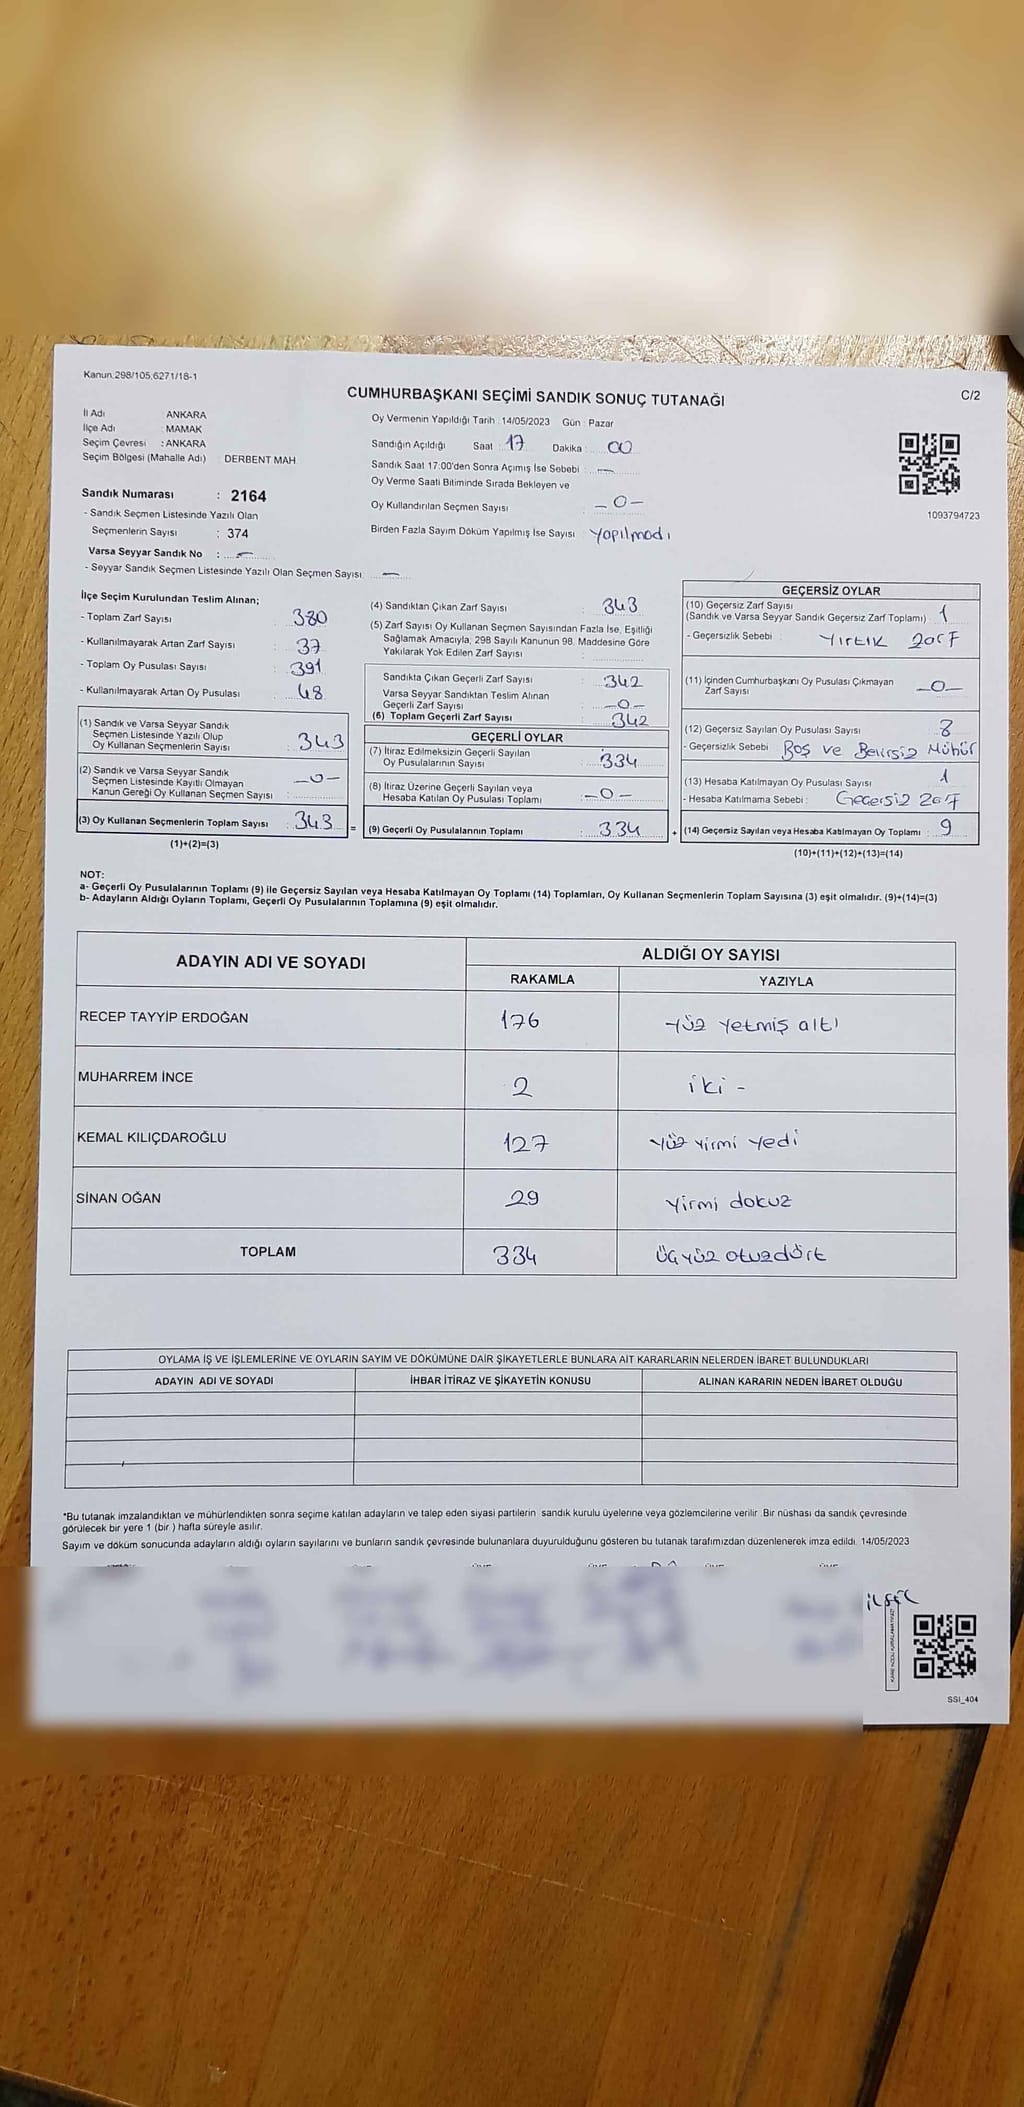 Kanun.298/105,6271/18-1
CUMHURBAŞKANI SEÇİMİ SANDIK SONUÇ TUTANAĞI
C/2
İl Adı : ANKARA
İlçe Adı : MAMAK
Seçim Çevresi : ANKARA
Seçim Bölgesi (Mahalle Adı) : DERBENT MAH
Sandık Numarası : 2164
- Sandık Seçmen Listesinde Yazılı Olan
Seçmenlerin Sayısı : 374
Varsa Seyyar Sandık No : —
- Seyyar Sandık Seçmen Listesinde Yazılı Olan Seçmen Sayısı —
Oy Vermenin Yapıldığı Tarih : 14/05/2023 Gün : Pazar
Sandığın Açıldığı Saat : 17 Dakika : 00
Sandık Saat 17:00'den Sonra Açımış İse Sebebi : —
Oy Verme Saati Bitiminde Sırada Bekleyen ve
Oy Kullandırılan Seçmen Sayısı : —0—
Birden Fazla Sayım Döküm Yapılmış İse Sayısı : Yapılmadı
1093794723
İlçe Seçim Kurulundan Teslim Alınan;
- Toplam Zarf Sayısı : 380
- Kullanılmayarak Artan Zarf Sayısı : 37
- Toplam Oy Pusulası Sayısı : 391
- Kullanılmayarak Artan Oy Pusulası : 48
(1) Sandık ve Varsa Seyyar Sandık
Seçmen Listesinde Yazılı Olup
Oy Kullanan Seçmenlerin Sayısı : 343
(2) Sandık ve Varsa Seyyar Sandık
Seçmen Listesinde Kayıtlı Olmayan
Kanun Gereği Oy Kullanan Seçmen Sayısı : —0—
(3) Oy Kullanan Seçmenlerin Toplam Sayısı : 343 =
(1)+(2)=(3)
(4) Sandıktan Çıkan Zarf Sayısı : 343
(5) Zarf Sayısı Oy Kullanan Seçmen Sayısından Fazla İse, Eşitliği
Sağlamak Amacıyla, 298 Sayılı Kanunun 98. Maddesine Göre
Yakılarak Yok Edilen Zarf Sayısı :
Sandıkta Çıkan Geçerli Zarf Sayısı : 342
Varsa Seyyar Sandıktan Teslim Alınan
Geçerli Zarf Sayısı : —0—
(6) Toplam Geçerli Zarf Sayısı : 342
GEÇERLİ OYLAR
(7) İtiraz Edilmeksizin Geçerli Sayılan
Oy Pusulalarının Sayısı : 334
(8) İtiraz Üzerine Geçerli Sayılan veya
Hesaba Katılan Oy Pusulası Toplamı : —0—
(9) Geçerli Oy Pusulalarının Toplamı : 334 +
GEÇERSİZ OYLAR
(10) Geçersiz Zarf Sayısı
(Sandık ve Varsa Seyyar Sandık Geçersiz Zarf Toplamı) : 1
- Geçersizlik Sebebi : Yırtık zarf
(11) İçinden Cumhurbaşkanı Oy Pusulası Çıkmayan
Zarf Sayısı —0—
(12) Geçersiz Sayılan Oy Pusulası Sayısı : 8
- Geçersizlik Sebebi : Boş ve Belirsiz Mühür
(13) Hesaba Katılmayan Oy Pusulası Sayısı : 1
- Hesaba Katılmama Sebebi : Geçersiz zarf
(14) Geçersiz Sayılan veya Hesaba Katılmayan Oy Toplamı : 9
(10)+(11)+(12)+(13)=(14)
NOT:
a- Geçerli Oy Pusulalarının Toplamı (9) ile Geçersiz Sayılan veya Hesaba Katılmayan Oy Toplamı (14) Toplamları, Oy Kullanan Seçmenlerin Toplam Sayısına (3) eşit olmalıdır. (9)+(14)=(3)
b- Adayların Aldığı Oyların Toplamı, Geçerli Oy Pusulalarının Toplamına (9) eşit olmalıdır.
ADAYIN ADI VE SOYADI
ALDIĞI OY SAYISI
RAKAMLA YAZIYLA
RECEP TAYYİP ERDOĞAN 176 yüz yetmiş altı
MUHARREM İNCE 2 iki -
KEMAL KILIÇDAROĞLU 127 yüz yirmi yedi
SİNAN OĞAN 29 yirmi dokuz
TOPLAM 334 üçyüz otuzdört
OYLAMA İŞ VE İŞLEMLERİNE VE OYLARIN SAYIM VE DÖKÜMÜNE DAİR ŞİKAYETLERLE BUNLARA AİT KARARLARIN NELERDEN İBARET BULUNDUKLARI
ADAYIN ADI VE SOYADI İHBAR İTİRAZ VE ŞİKAYETİN KONUSU ALINAN KARARIN NEDEN İBARET OLDUĞU
*Bu tutanak imzalandıktan ve mühürlendikten sonra seçime katılan adayların ve talep eden siyasi partilerin sandık kurulu üyelerine veya gözlemcilerine verilir. Bir nüshası da sandık çevresinde
görülecek bir yere 1 (bir ) hafta süreyle asılır.
Sayım ve döküm sonucunda adayların aldığı oyların sayılarını ve bunların sandık çevresinde bulunanlara duyurulduğunu gösteren bu tutanak tarafımızdan düzenlenerek imza edildi. 14/05/2023
SSI_404